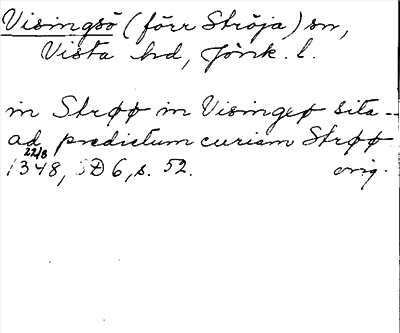 Visingsö (förr Ströja) sn,
Vista hd, Jönk. l.
in Strøø in Visingsø sita --
ad predictum curiam Strøø
22/8
1348, SD 6, s. 52. orig.